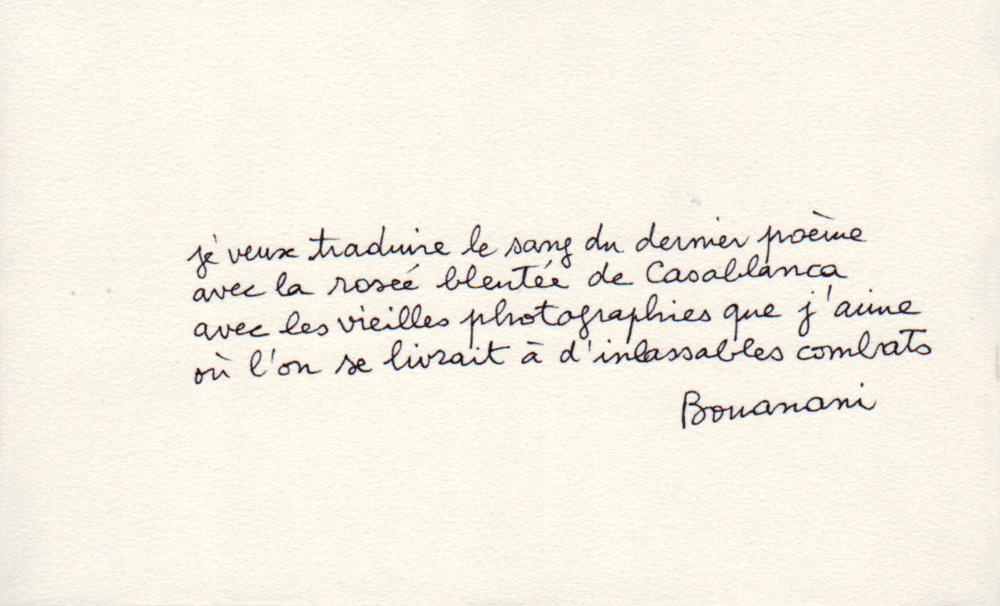 je veux traduire le sang du dernier poème
avec la rosée bleutée de Casablanca
avec les vieilles photographies que j'aime
où l'on se livrait à d'inlassables combats
Bouanani